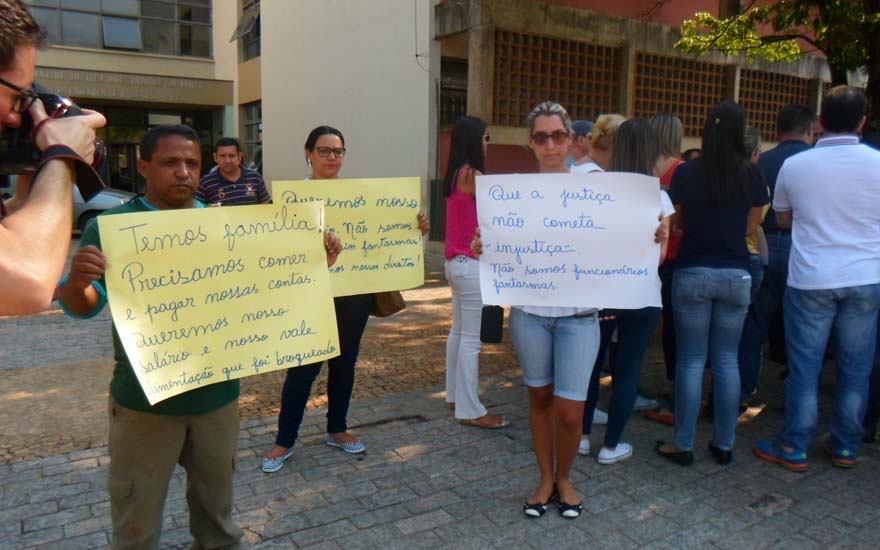 Temos família!
Precisamos comer
e pagar nossas contas.
Queremos nosso
salário e nosso vale
alimentação que foi broqueado
Queremos nosso
Não somos
fantasmas!
nosso direitos!
Que a justiça
não cometa
"injustiça".
Não somos funcionários
fantasmas.
DE JUSTIÇA